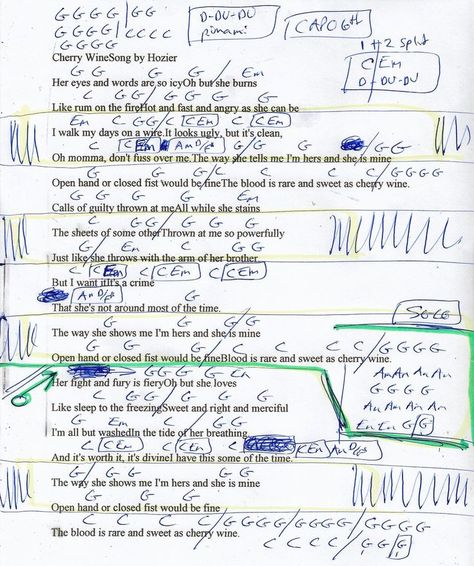 G G G G / G G
D-DU-DU
CAPO 6th
G G G G / C C C C
G G G G
1 + 2 split
Cherry WineSong by Hozier
C Em
D-DU-DU
G G / G G / Em
Her eyes and words are so icyOh but she burns
C G G / G G G
Like rum on the fireHot and fast and angry as she can be
Em C G G / C C Em C C Em
I walk my days on a wire.It looks ugly, but it's clean,
C Em Am D/F# G / G G G / G
Oh momma, don't fuss over me.The way she tells me I'm hers and she is mine
G G G / C C C C C / G G G G
Open hand or closed fist would be fineThe blood is rare and sweet as cherry wine.
G G / G G Em
Calls of guilty thrown at meAll while she stains
C G G / G G G
The sheets of some otherThrown at me so powerfully
G / Em C G G / C
Just like she throws with the arm of her brother
C C Em C C Em C C Em
But I want itIt's a crime
Am D/F# G
That she's not around most of the time.
SOLO
G / G G G / G
The way she shows me I'm hers and she is mine
G G G / C C C C C / G G G G
Open hand or closed fist would be fineBlood is rare and sweet as cherry wine.
G G G G Em
Am Am Am Am
Her fight and fury is fieryOh but she loves
G G G G
C G G / G G G
Like sleep to the freezingSweet and right and merciful
Am Am Am Am
G / Em C G G / C
Em Em G / G
I'm all but washedIn the tide of her breathing
C C Em C C Em C Em Am D/F#
And it's worth it, it's divineI have this some of the time.
G / G G G / G
The way she shows me I'm hers and she is mine
G G G / C
Open hand or closed fist would be fine
C C C C / G G G G / G G G G / G G G G
The blood is rare and sweet as cherry wine.
C C C C / G G G